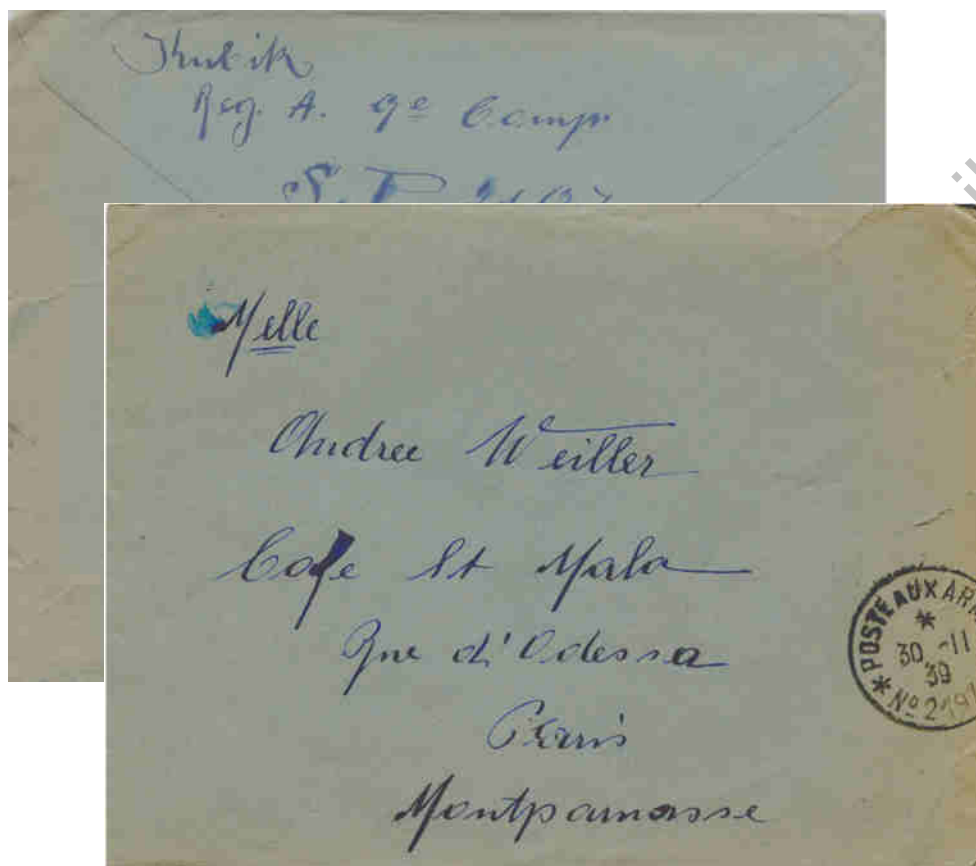 Kubik
Reg. A. 9e Comp.
S.P.
Melle
Andree Weiller
Cafe St Malo
Rue d'Odessa
Paris
Montparnasse
* POSTE AUX AR
*
30 -11
39
No 219